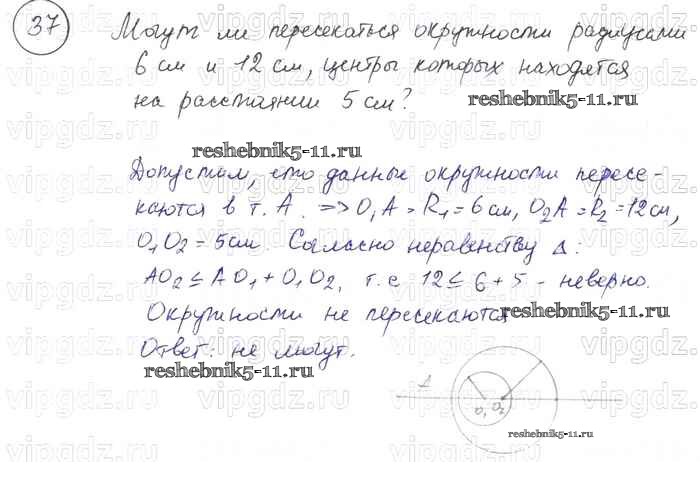 37 Могут ли пересекаться окружности радиусами
6 см и 12 см, центры которых находятся
на расстоянии 5 см?
reshebnik5-11.ru
reshebnik5-11.ru
Допустим, что данные окружности пересе-
каются в т. A. => O₁A = R₁ = 6 см, O₂A = R₂ = 12 см,
O₁O₂ = 5 см. Согласно неравенству Δ:
AO₂ ≤ AO₁ + O₁O₂, т.е 12 ≤ 6 + 5 - неверно.
Окружности не пересекаются
reshebnik5-11.ru
Ответ: не могут.
reshebnik5-11.ru
A
O₁ O₂
reshebnik5-11.ru
vipgdz.ru vipgdz.ru vipgdz.ru vipgdz.ru